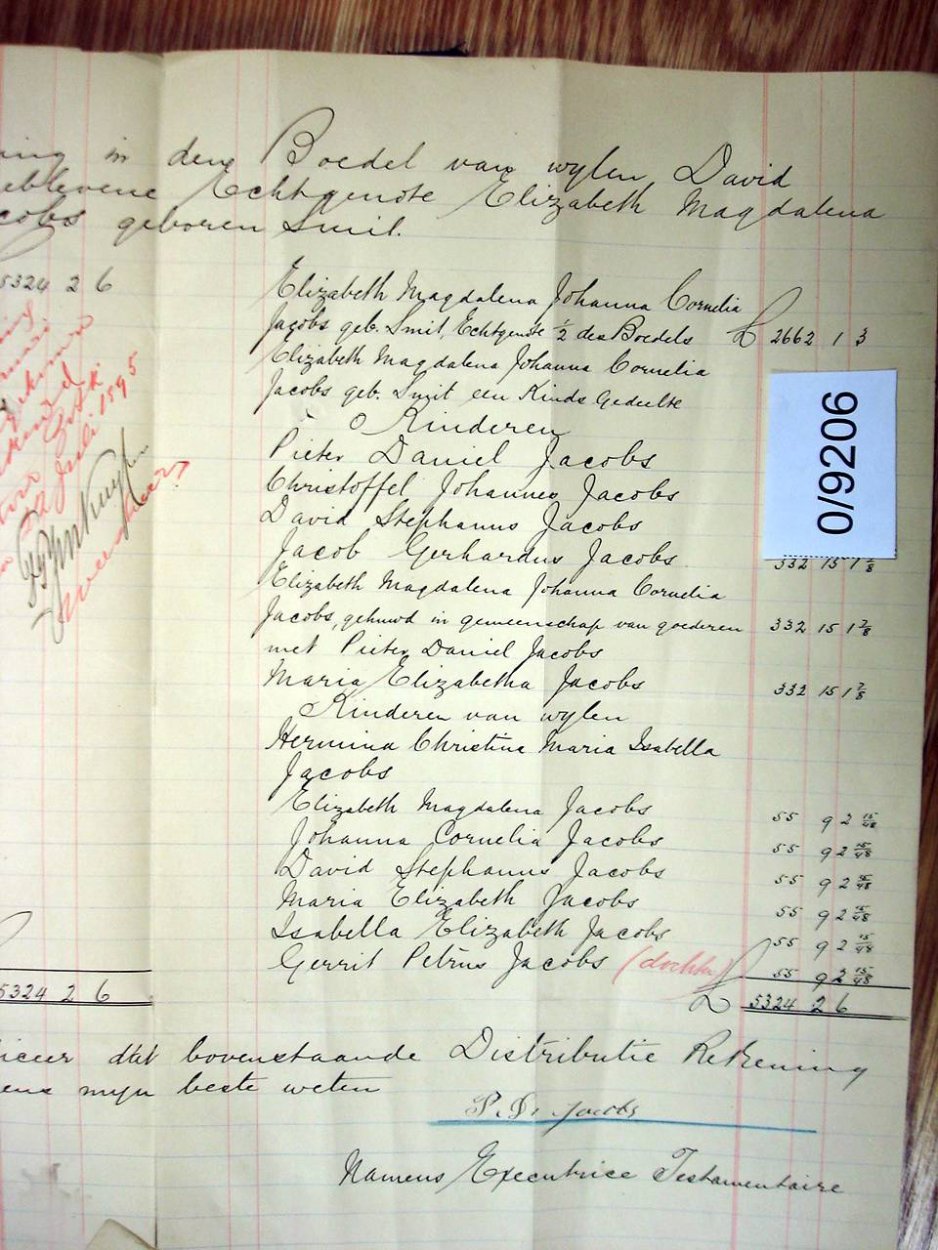 ing in den Boedel van wylen David
eblevene Echtgenote Elizabeth Magdalena
cobs geboren Smit.
5324 2 6
Elizabeth Magdalena Johanna Cornelia
Jacobs geb. Smit, Echtgente 1/2 des Boedels £ 2662 1 3
Elizabeth Magdalena Johanna Cornelia
Jacobs geb. Smit een Kinds Gedeelte
Kinderen
Pieter Daniel Jacobs
Christoffel Johannes Jacobs
David Stephanus Jacobs
Jacob Gerhardus Jacobs 332 15 1 7/8
Elizabeth Magdalena Johanna Cornelia
Jacobs, gehuwd in gemeenschap van goederen 332 15 1 7/8
met Pieter Daniel Jacobs
Maria Elizabetha Jacobs 332 15 1 7/8
Kinderen van wylen
Hermina Christina Maria Isabella
Jacobs
Elizabeth Magdalena Jacobs 55 9 2 15/48
Johanna Cornelia Jacobs 55 9 2 15/48
David Stephanus Jacobs 55 9 2 15/48
Maria Elizabeth Jacobs 55 9 2 15/48
Isabella Elizabeth Jacobs 55 9 2 15/48
Gerrit Petrus Jacobs (dochter) 55 9 2 15/48
5324 2 6
£ 5324 2 6
iceer dat bovenstaande Distributie Rekening
ens myn beste weten
P. D. Jacobs
Namens Executrice Testamentaire
0/9206
Juli 1895